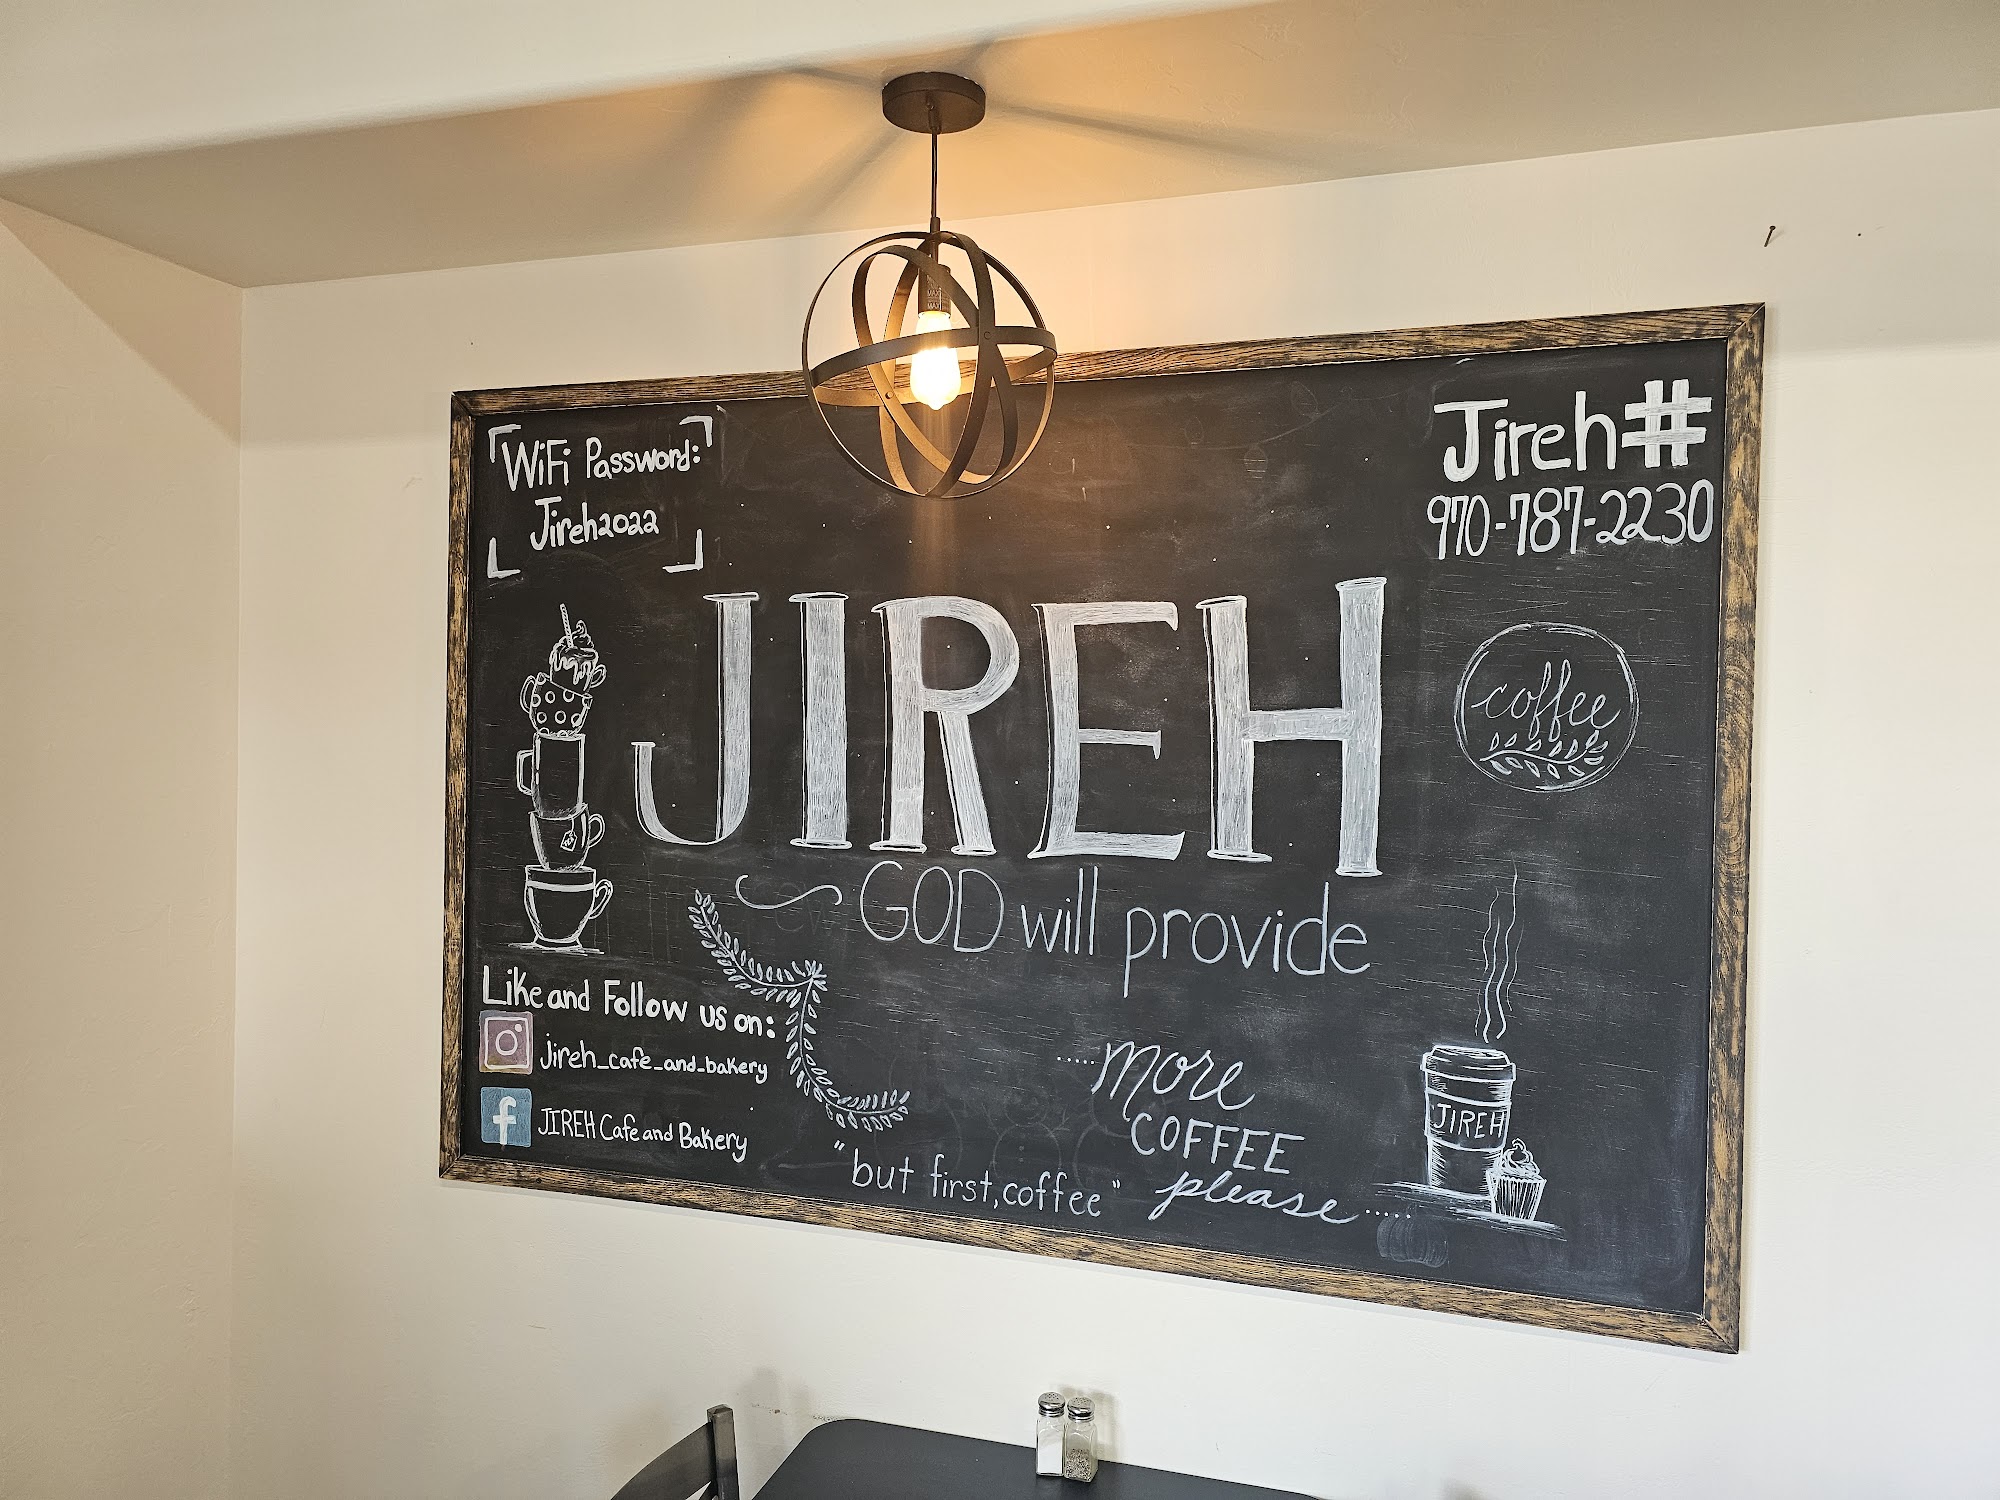 WiFi Password:
Jireh2022
Jireh#
970-787-2230
JIREH
GOD will provide
coffee
Like and Follow us on:
jireh_cafe_and_bakery
f
JIREH Cafe and Bakery
.....more
COFFEE
please.....
"but first, coffee"
JIREH